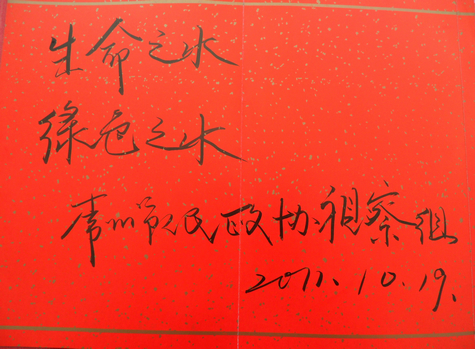 生命之水
绿色之水
常州市人民政协视察组
2011.10.19.